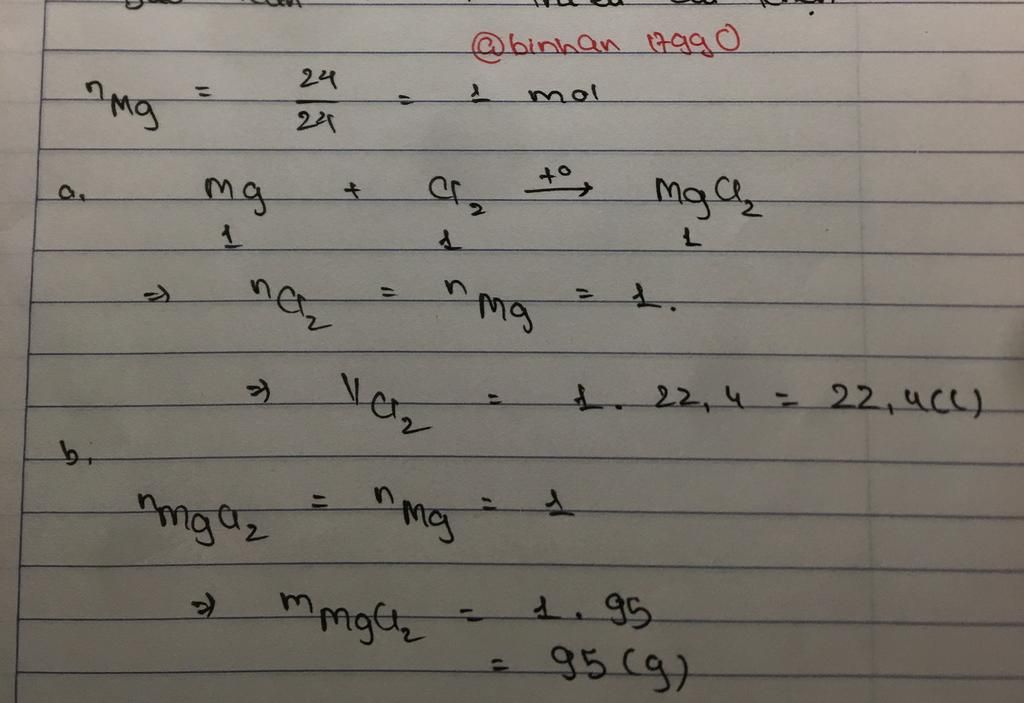 @binhan 17990
nMg = 24/24 = 1 mol
a. Mg + Cl2 +o → MgCl2
1 1 1
⇒ nCl2 = nMg = 1.
⇒ VCl2 = 1. 22,4 = 22,4(L)
b,
nMgCl2 = nMg = 1
⇒ mMgCl2 = 1. 95
= 95 (g)